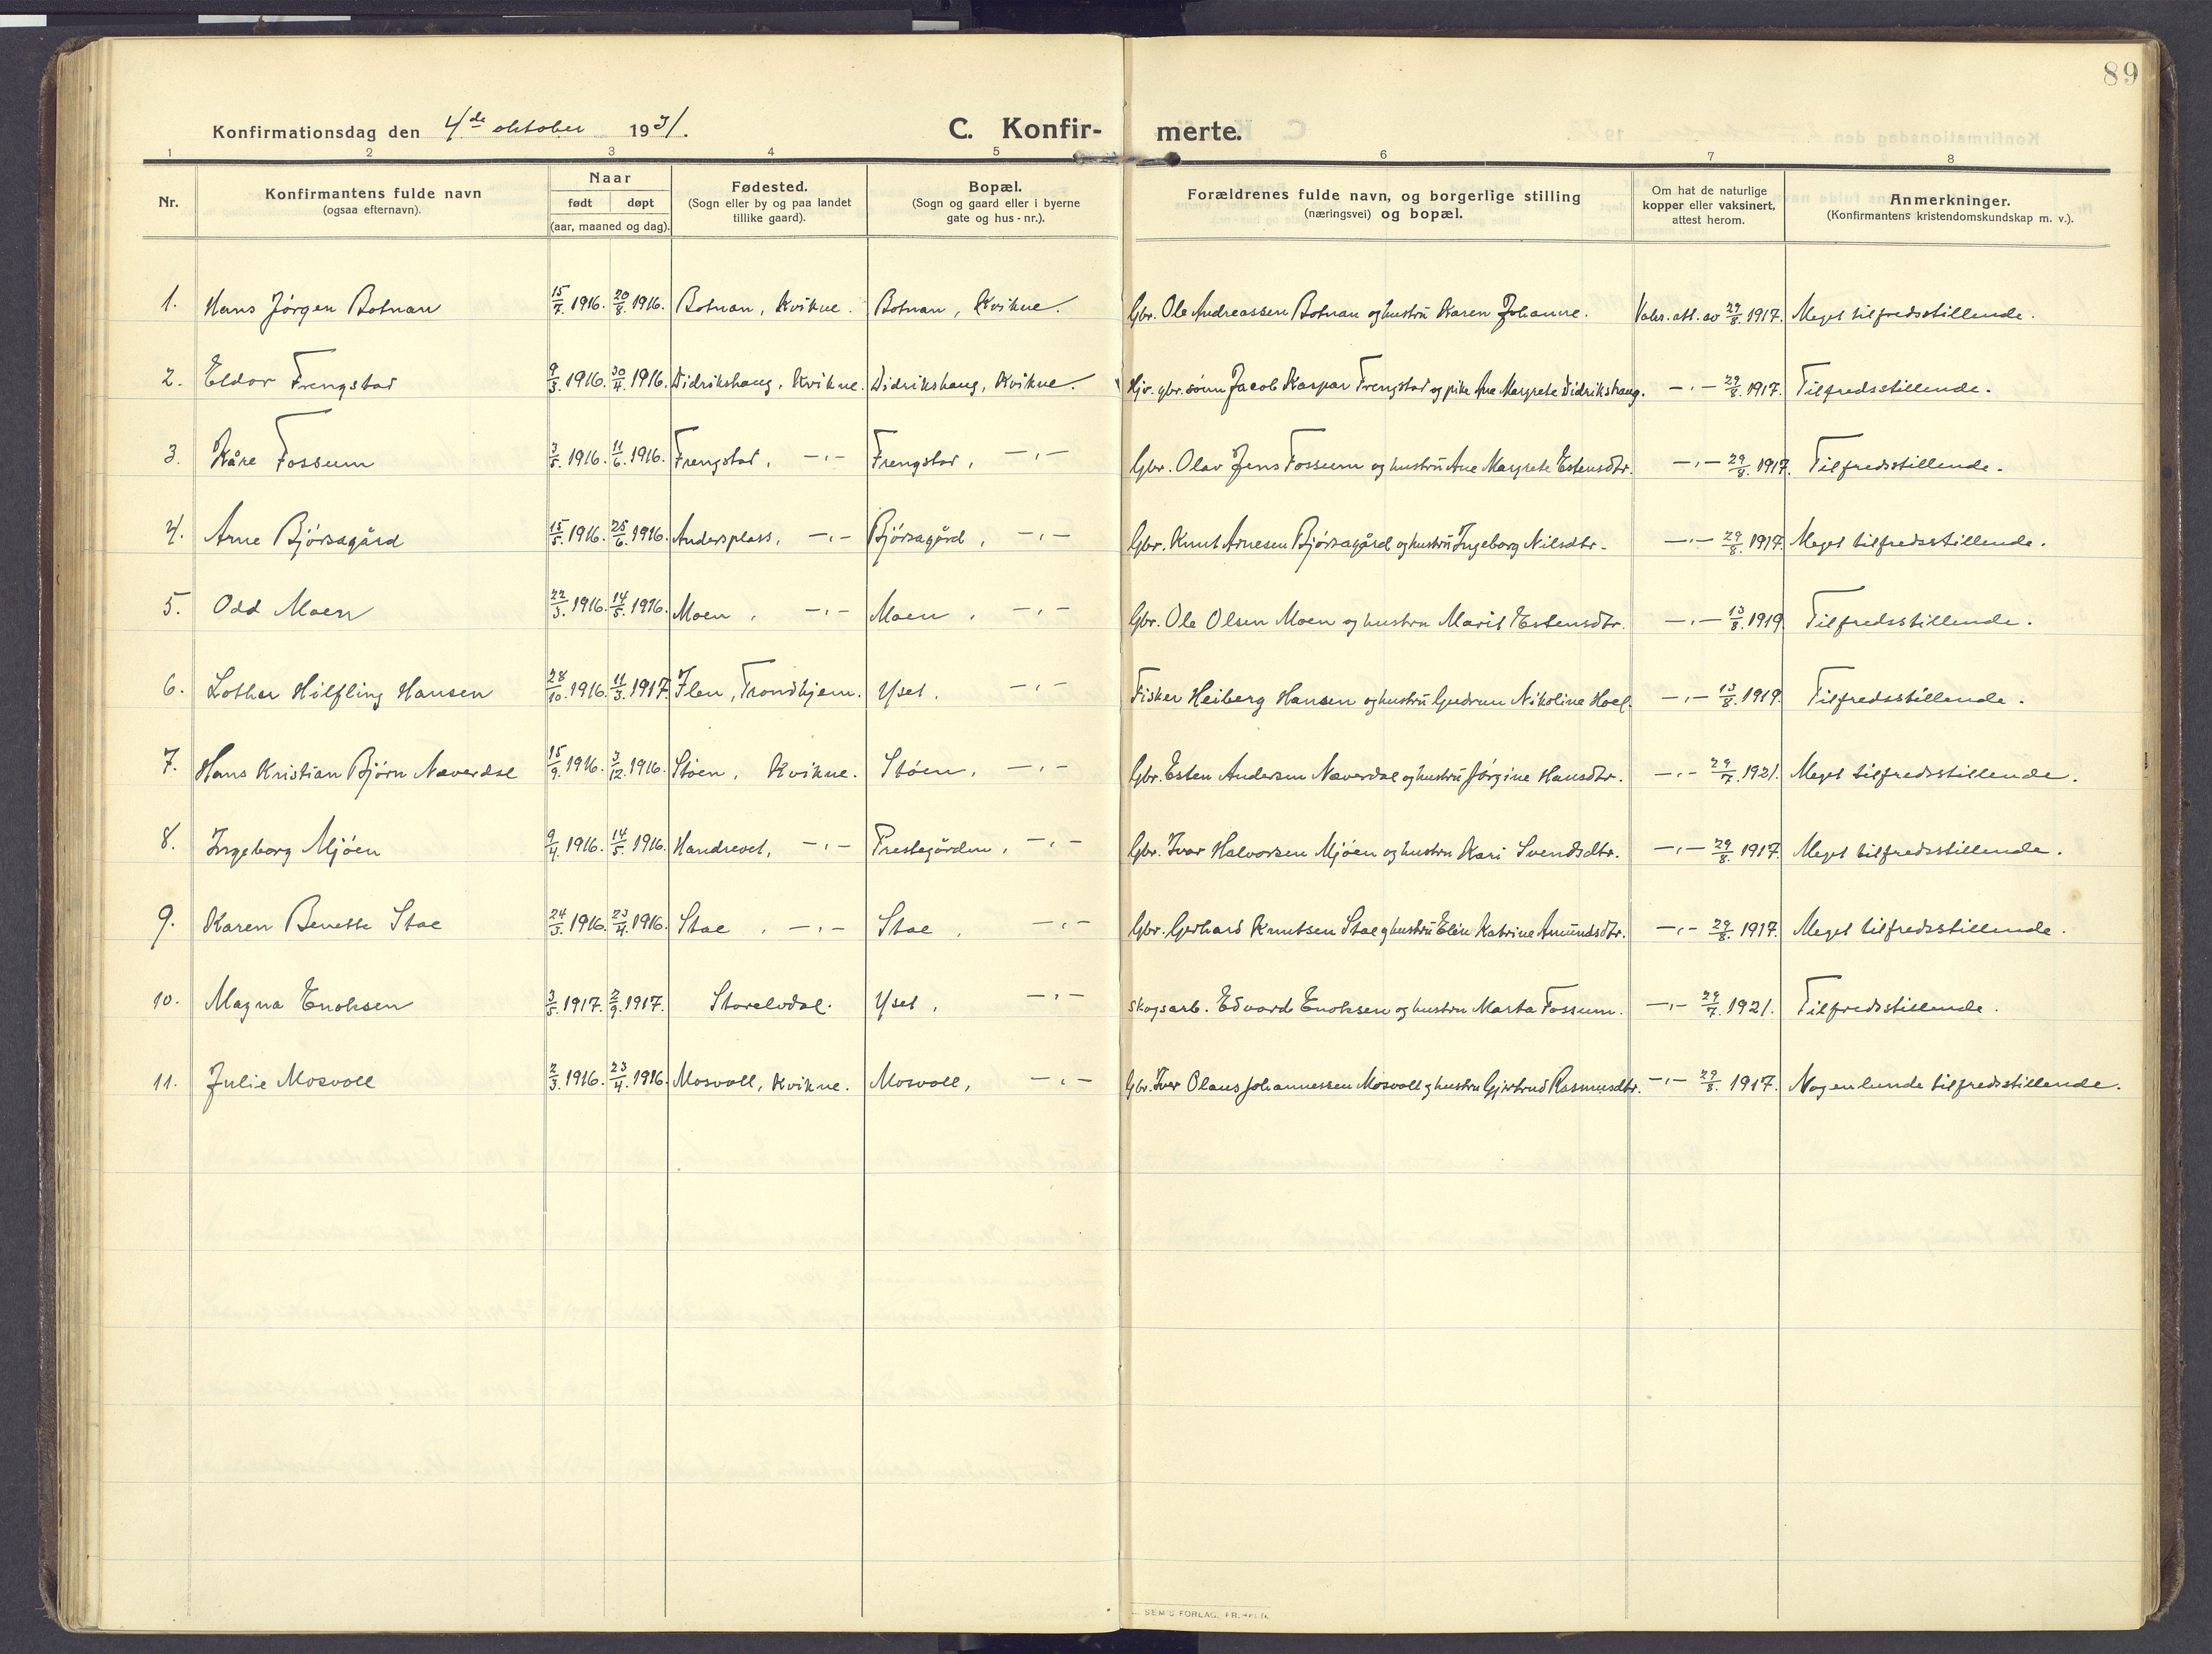 89
Konfirmationsdag den 4de oktober 1931.
C. Konfir-merte.
1 2 3 4 5 6 7 8
Nr. | Konfirmantens fulde navn (ogsaa efternavn). | Naar født døpt (aar, maaned og dag). | Fødested. (Sogn eller by og paa landet tillike gaard). | Bopæl. (Sogn og gaard eller i byerne gate og hus-nr.). | Forældrenes fulde navn, og borgerlige stilling (næringsvei) og bopæl. | Om hat de naturlige kopper eller vaksinert, attest herom. | Anmerkninger. (Konfirmantens kristendomskundskap m. v.).
1. Hans Jörgen Botnan 15/7. 1916. 20/8. 1916. Botnan, Kvikne. Botnan, Kvikne. Gbr. Ole Andreassen Botnan og hustrü Karen Johanne. Vaks. att. av 29/8. 1917. Meget tilfredsstillende.
2. Eldor Frengstad 9/3. 1916. 30/4. 1916. Didrikshaug, Kvikne. Didrikshaug, Kvikne. Hjv. gbr. sønn Jacob Kaspar Frengstad og pike Ane Margrete Didrikshaug. -,- 29/8. 1917. Tilfredsstillende.
3. Kåre Fossum 3/5. 1916. 11/6. 1916. Frengstad, -,- Frengstad, -,- Gbr. Olav Jens Fossum og hustrü Ane Margrete Estensdtr. -,- 29/8. 1917. Tilfredsstillende.
4. Arne Bjórsagård 15/5. 1916. 25/6. 1916. Andersplass, -,- Bjórsagård, -,- Gbr. Knut Arnesen Bjórsagård og hustrü Ingeborg Nilsdtr. -,- 29/8. 1917. Meget tilfredsstillende.
5. Odd Moen 22/3. 1916. 14/5. 1916. Moen, -,- Moen, -,- Gbr. Ole Olsen Moen og hustru Marit Estensdtr. -,- 13/8. 1919. Tilfredsstillende.
6. Lothar Hilfling Hansen 28/10. 1916. 11/3. 1917. Ilen, Trondhjem. Yset, -,- Fisker Heiberg Hansen og hustrü Gudrun Nikoline Hoel. -,- 13/8. 1919. Tilfredsstillende.
7. Hans Kristian Bjórn Næverdal 15/9. 1916. 3/12. 1916. Stóen, Kvikne. Stóen, -,- Gbr. Esten Andersen Næverdal og hustrü Jørgine Hansdtr. -,- 29/7. 1921. Meget tilfredsstillende.
8. Ingeborg Mjóen 9/4. 1916. 14/5. 1916. Handrevet, -,- Prestegården, -,- Gbr. Ivar Halvorsen Mjóen og hustru Kari Svendsdtr. -,- 29/8. 1917. Meget tilfredsstillende.
9. Karen Benette Stae 24/3. 1916. 23/4. 1916. Stae, -,- Stae, -,- Gbr. Gerhard Knutsen Stae og hustrü Elen Katrine Amundsdtr. -,- 29/8. 1917. Meget tilfredsstillende.
10. Magna Enoksen 3/5. 1917. 2/9. 1917. Storelvdal. Yset, -,- Skogsarb. Edvard Enoksen og hustru Marta Fossum. -,- 29/7. 1921. Tilfredsstillende.
11. Julie Mosvoll 2/3. 1916. 23/4. 1916. Mosvoll, Kvikne. Mosvoll, -,- Gbr. Iver Olaus Johannessen Mosvoll og hustru Gjertrud Rasmusdtr. -,- 29/8. 1917. Nogenlunde tilfredsstillende.
SEM'S FORLAG, FR.HALD.